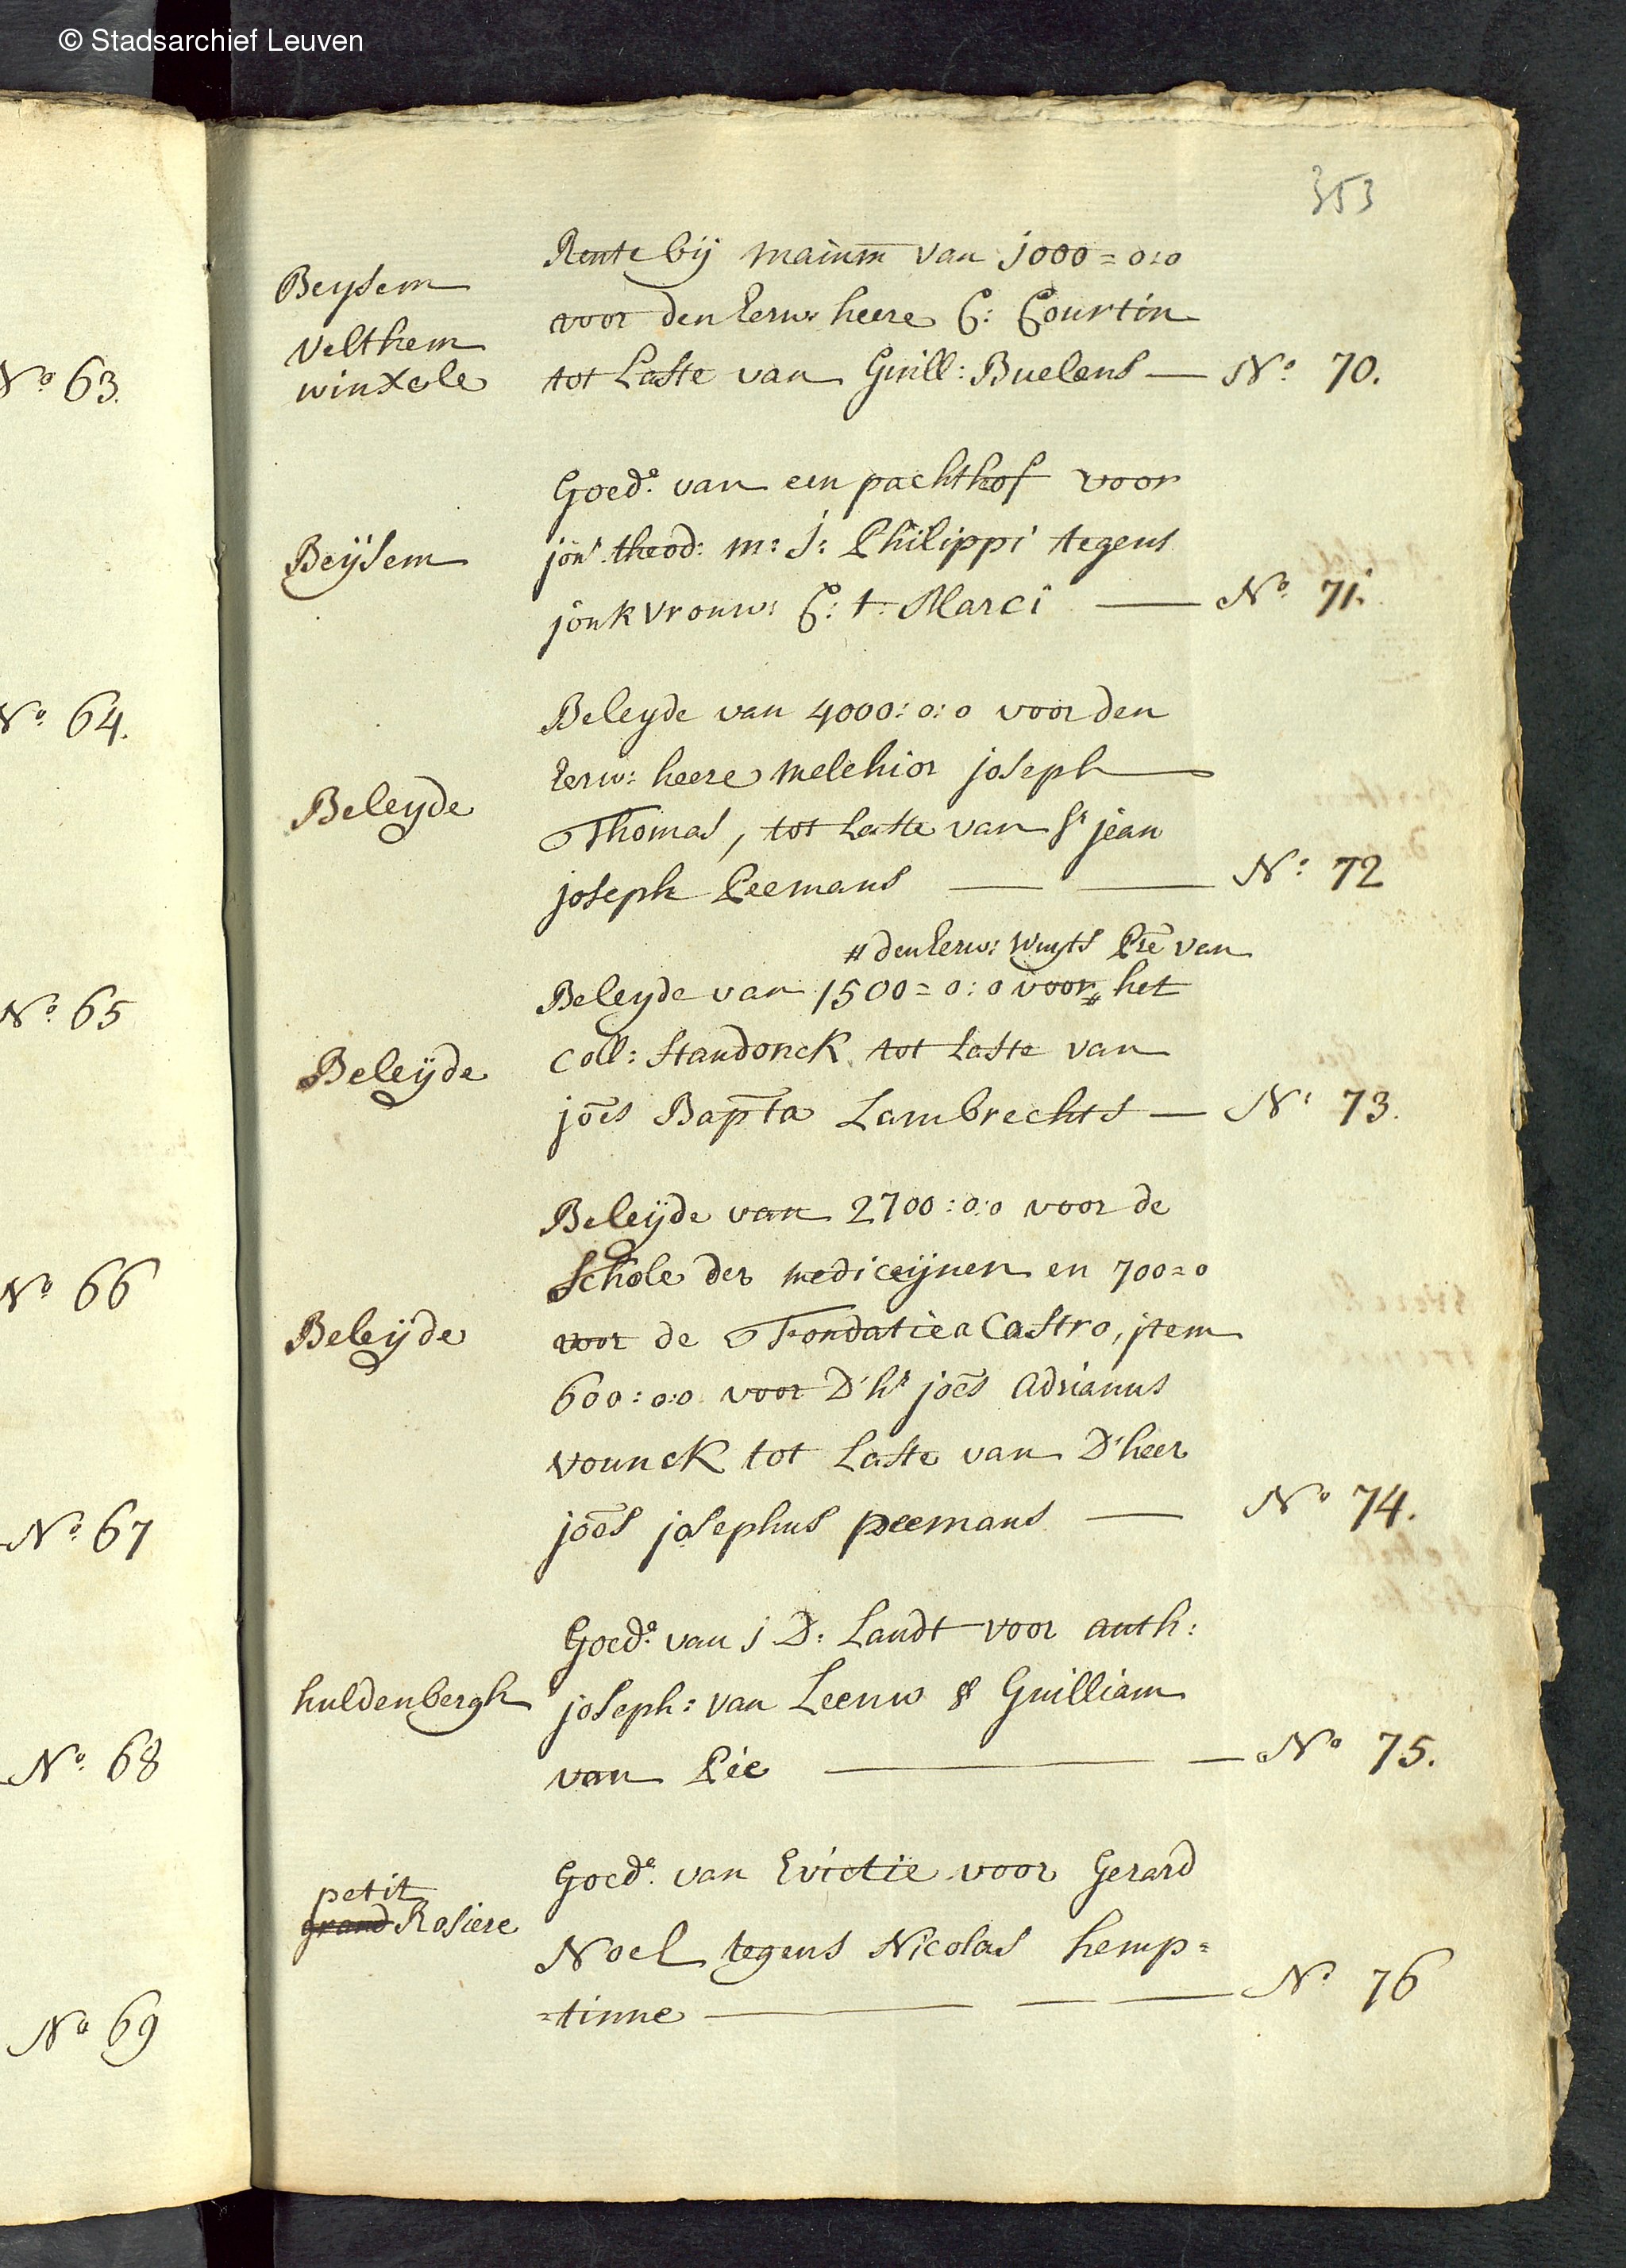 © Stadsarchief Leuven
353
No 63.
No 64.
No 65
No 66
No 67
No 68
No 69
Beysem
Velthem
winxele
Rente bij mainm̄ van 1000=0:0
voor den Eerw: heere C: Courtin
tot Laste van Guill: Buelens — No 70.
Beÿsem
Goede. van een pachthof voor
jonr. theod: m: J: Philippi tegens
jonkvrouw: C: t. Marci — No 71.
Beleyde
Beleyde van 4000:0:0 voor den
Eerw: heere melchior joseph
Thomas, tot Laste van Sr jean
joseph Peemans — — No: 72
# den Eerw: Wuyts Pr̄e van
Beleÿde
Beleyde van 1500=0:0 voor # het
Coll: Standonck tot Laste van
jōes Bap̄ta Lambrechts — No 73.
Beleÿde
Beleÿde van 2700:0:0 voor de
Schole der medicijnen en 700=0
voor de Fondatie a Castro, jtem
600:0:0 voor D'hr jōes Adrianus
vounck tot Laste van D'heer
jōes josephus peemans — No 74.
huldenbergh
Goede. van j D: Landt voor anth:
joseph: van Leeuw & Guilliam
van Pée — — No 75.
petit
grand Rosiere
Goede. van Evictie voor Gerard
Noel tegens Nicolas hemp=
=tinne — — — No 76